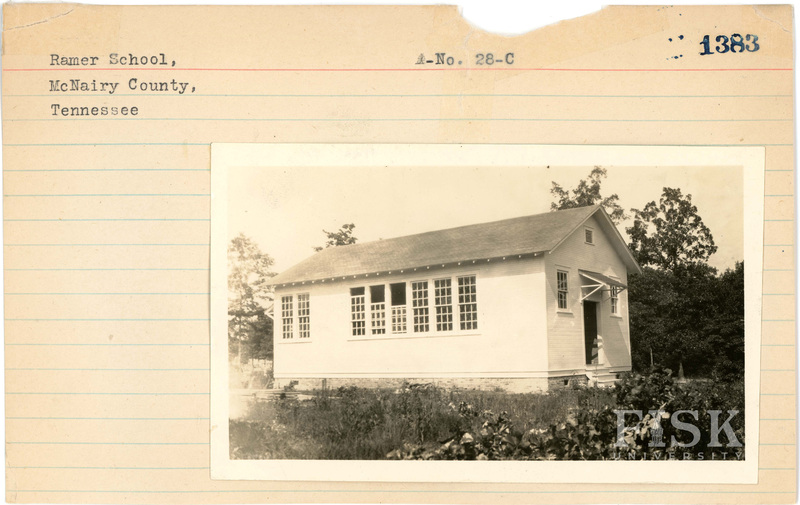 Ramer School, A-No. 28-C 1383
McNairy County,
Tennessee
FISK
UNIVERSITY